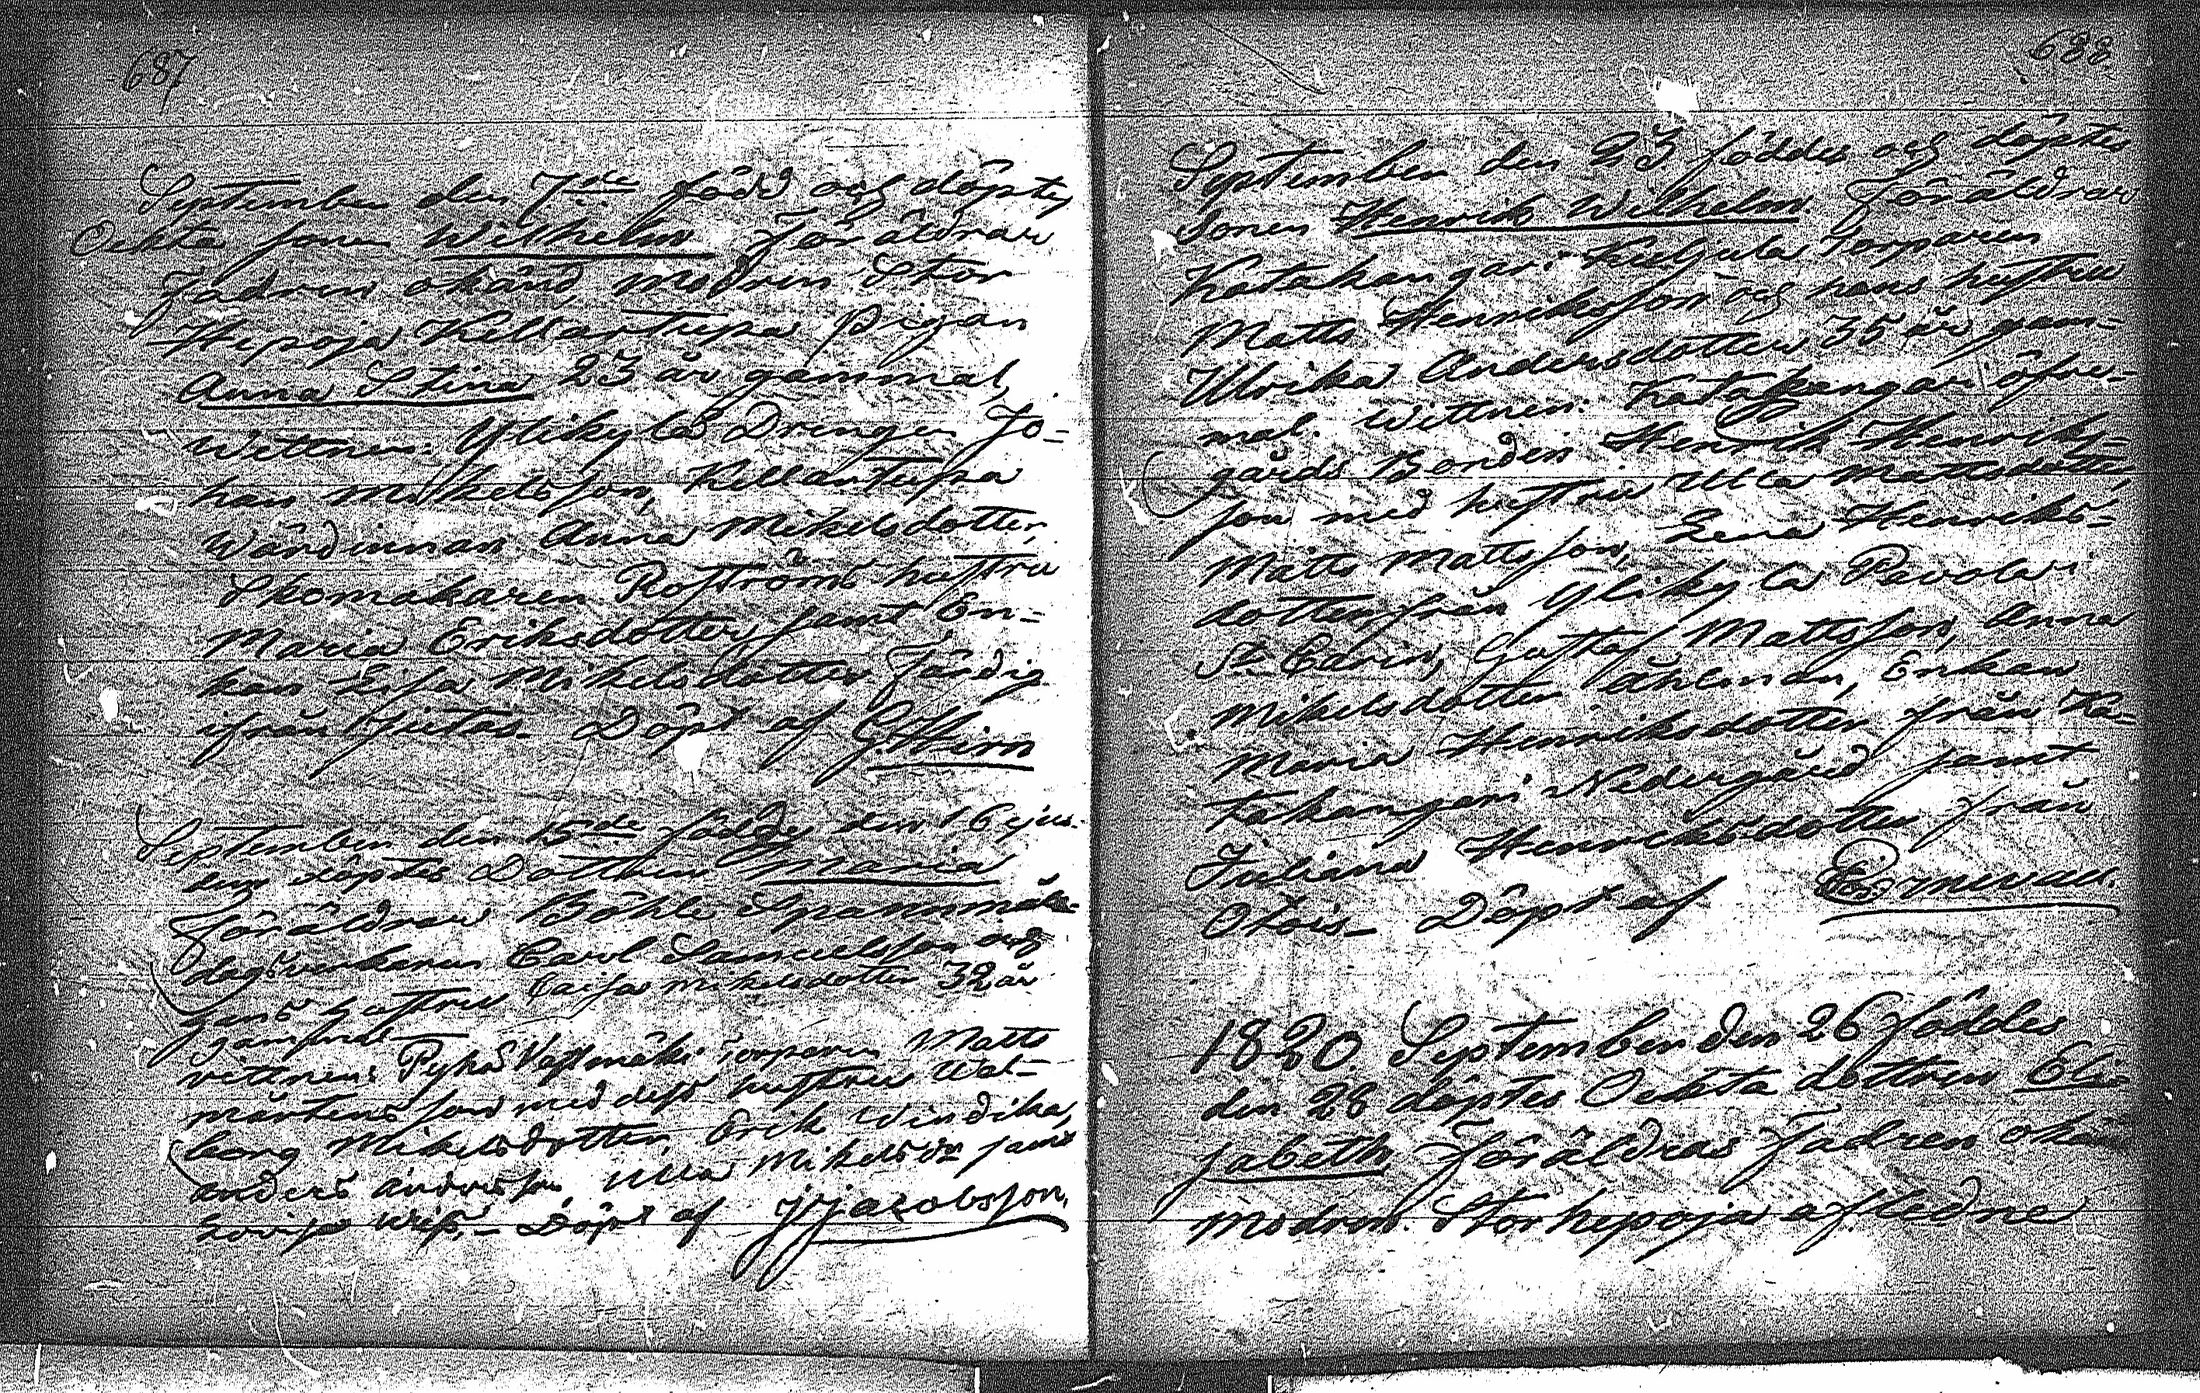 687
September den 7de född och döptes
Oekta sonen Wilhelm Föräldrar
Fadren okänd, Modren Stor
Hepoja Kellartupa Pigan
Anna Stina 23 år gammal,
Wittnen: Ylikylä Drengen Jo=
han Mikelsson, Kellartupa
Wärdinnan Anna Mikelsdotter,
Skomakaren Roströms hustru
Maria Eriksdotter samt En=
kan Lisa Mikelsdotter Färdig
ifrån Juta. Döpt af G. Hirn
September den 15de föddes den 16 ejus=
dem döptes Dottren Maria
Föräldrar Böhle Spannmåls=
dagsverkaren Carl Samuelsson och
hans hustru Caisa Mikelsdotter 32 år
gammal
vittnen: Pyhä Torparen Matts
Mårtensson med dess hustru Wal=
borg Mikelsdotter Erik Windika,
Anders Andersson Ulla Mikelsdr samt
Lovisa Döpt af J Jacobsson.
688
September den 23 föddes och döptes
Sonen Henrik Wilhelm. Föräldrar
Katakangari Kuljula Torparen
Matts Henriksson och hans hustru
Ulrika Andersdotter 35 år gam=
mal. Wittnen: Katakangari öfre=
gårds Bonden Henrik Henriks=
son med hustru Ulla Mattsdotter,
Matts Mattsson, Lena Henriks=
dotter från Ylikylä Pavola i
St Carin, Gustaf Mattsson, Anna
Mikelsdotter Åhlman, Enkan
Maria Henriksdotter från Ka=
takangari Nedergård samt
Juliana Henriksdotter från
Otois. Döpt af
1820. September den 26 föddes
den 28 döptes Oekta dottren Eli=
sabeth Föräldrar Fadren okän
Modren. Storhepoja afledne